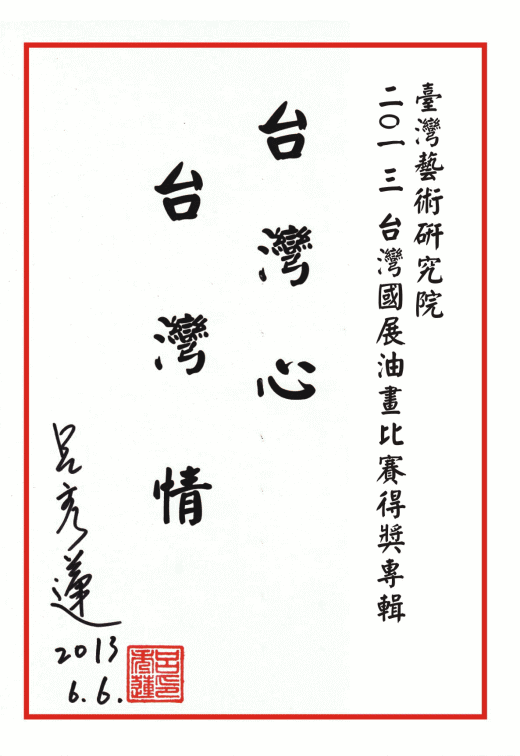 臺灣藝術研究院
二〇一三台灣國展油畫比賽得獎專輯
台灣心
台灣情
呂秀蓮
2013
6.6.
呂秀蓮印